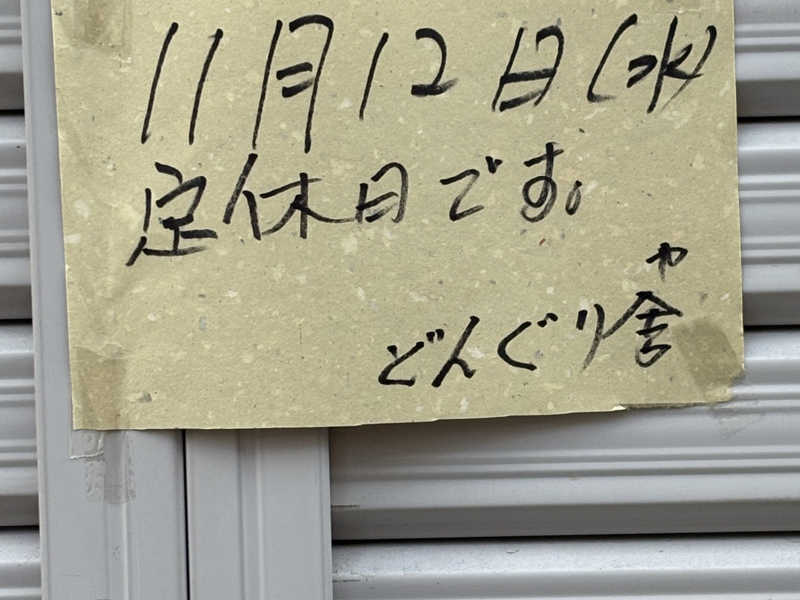 11月12日(水)
定休日です。
や
どんぐり舎